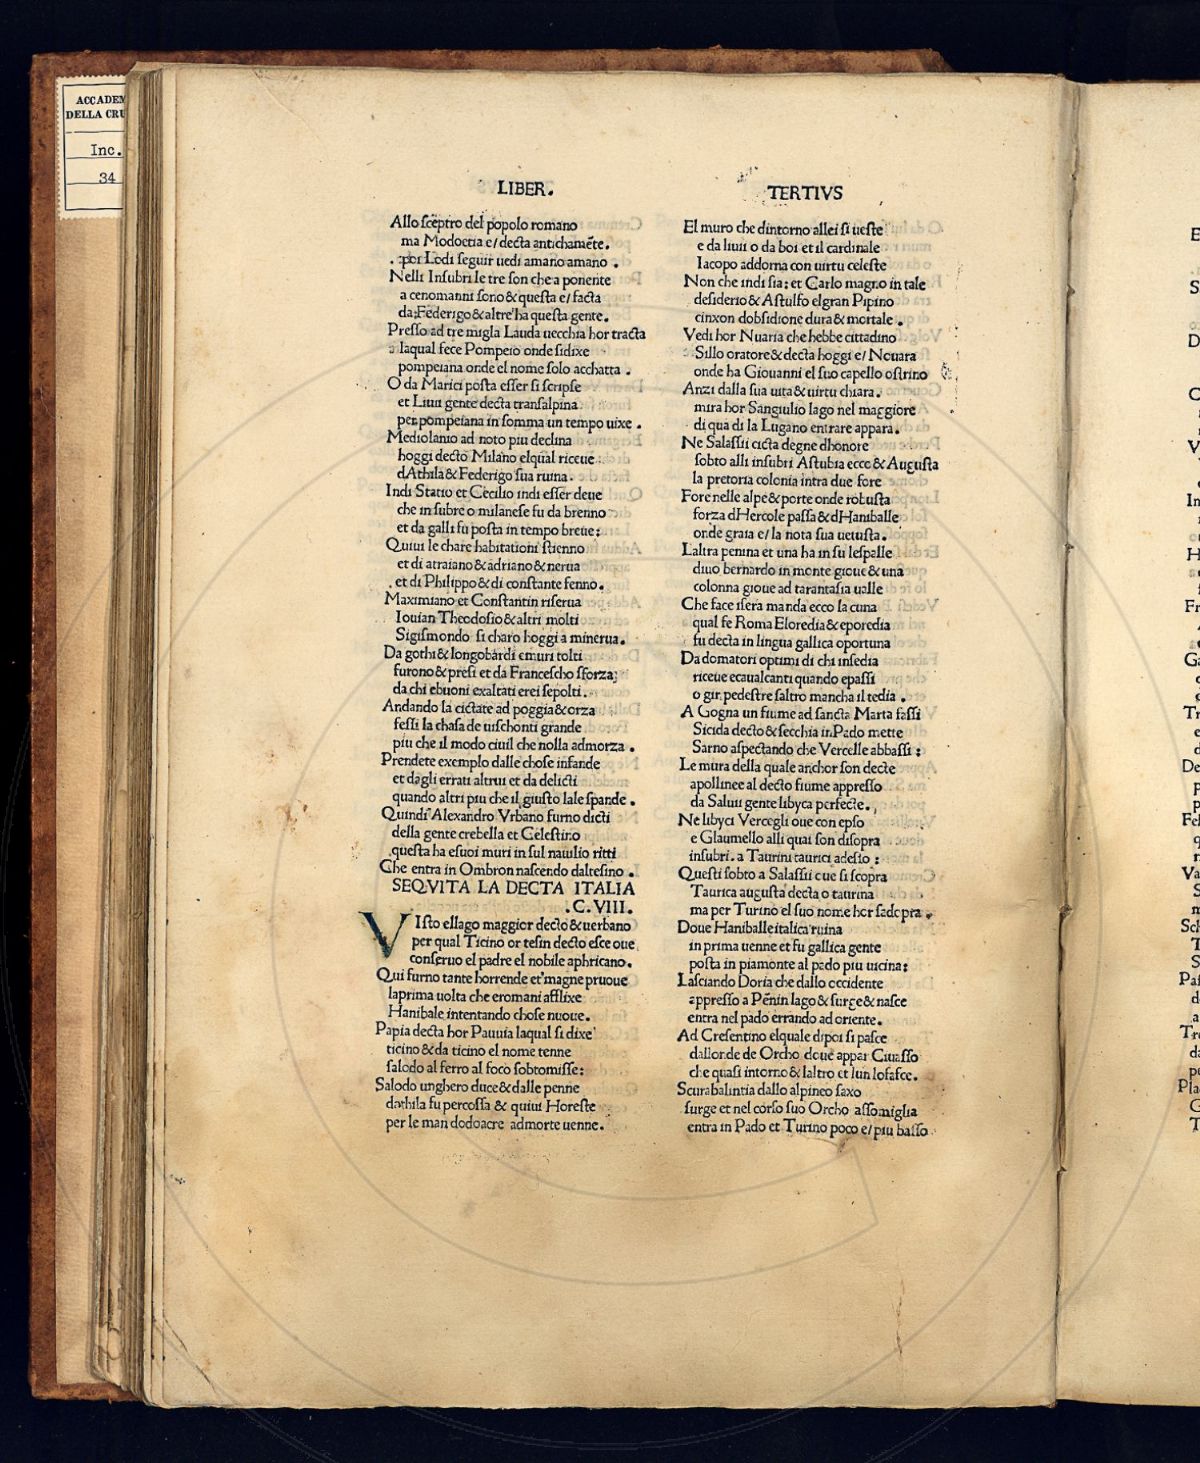 ACCADEM
DELLA CRU
Inc.
34
LIBER.
Allo sceptro del popolo romano
ma Modoetia e/ decta antichamēte.
por Lodi seguir uedi amano amano .
Nelli Insubri le tre son che a ponente
a cenomanni sono & questa e/ facta
da Federigo & altre ha questa gente.
Presso ad tre migla Lauda uecchia hor tracta
laqual fece Pompeio onde sidixe
pompeiana onde el nome solo acchatta .
O da Marici posta esser si scripse
et Liuii gente decta transalpina
per pompeiana in somma un tempo uixe .
Mediolanio ad noto piu declina
hoggi decto Milano elqual riceue
dAthila & Federigo sua ruina .
Indi Statio et Cecilio indi esser deue
che in subre o milanese fu da brenno
et da galli fu posta in tempo breue:
Quiui le chare habitationi stienno
et di atraiano & adriano & nerua
et di Philippo & di constante fenno.
Maximiano et Constantin riserua
Iouian Theodosio & altri molti
Sigismondo si charo hoggi a minerua.
Da gothi & longobardi emuri tolti
furono & presi et da Francescho sforza;
da chi ebuoni exaltati erei sepolti.
Andando la cictate ad poggia & orza
fessi la chasa de uischonti grande
piu che il modo ciuil che nolla admorza .
Prendete exemplo dalle chose infande
et dagli errati altrui et da delicti
quando altri piu che il giusto lale spande .
Quindi Alexandro Vrbano furno dicti
della gente crebella et Celestino
questa ha esuoi muri in sul nauilio ritti
Che entra in Ombron nascendo daltesino .
SEQVITA LA DECTA ITALIA
.C.VIII.
VIsto ellago maggior decto & uerbano
per qual Ticino or tesin decto esce oue
conseruo el padre el nobile aphricano.
Qui furno tante horrende et magne pruoue
laprima uolta che eromani afflixe
Hanibale intentando chose nuoue.
Papia decta hor Pauuia laqual si dixe
ticino & da ticino el nome tenne
salodo al ferro al foco sobtomisse:
Salodo unghero duce & dalle penne
dathila fu percossa & quiui Horeste
per le man dodoacre admorte uenne.
TERTIVS
El muro che dintorno allei si ueste
e da liuii o da boi et il cardinale
Iacopo addorna con uirtu celeste
Non che indi sia: et Carlo magno in tale
desiderio & Astulfo elgran Pipino
cinxon dobsidione dura & mortale .
Vedi hor Nuaria che hebbe cittadino
Sillo oratore & decta hoggi e/ Nouara
onde ha Giouanni el suo capello ostrino
Anzi dalla sua uita & uirtu chiara.
mira hor Sangiulio lago nel maggiore
di qua di la Lugano entrare appara.
Ne Salassii cicta degne dhonore
sobto alli insubri Astubia ecco & Augusta
la pretoria colonia intra due fore
Fore nelle alpe & porte onde robusta
forza dHercole passa & dHaniballe
onde graia e/ la nota sua uetusta.
Laltra penina et una ha in su lespalle
diuo bernardo in monte gioue & una
colonna gioue ad tarantasia ualle
Che face isera manda ecco la cuna
qual fe Roma Eloredia & eporedia
fu decta in lingua gallica oportuna
Da domatori optimi di chi insedia
riceue ecaualcanti quando epassi
o gir pedestre saltro mancha il tedia .
A Gogna un fiume ad sancta Marta fassi
Sicida decto & secchia in Pado mette
Sarno aspectando che Vercelle abbassi :
Le mura della quale anchor son decte
apollinee al decto fiume appresso
da Saluii gente libyca perfecte.
Ne libyci Vercegli oue con epso
e Glaumello alli quai son disopra
insubri. a Taurini taurici adesio :
Questi sobto a Salassii cue si scopra
Taurica augusta decta o taurina
ma per Turino el suo nome hor sadopra .
Doue Haniballe italica ruina
in prima uenne et fu gallica gente
posta in piamonte al pado piu uicina:
Lasciando Doria che dallo occidente
appresso a Pēnin lago & surge & nasce
entra nel pado errando ad oriente.
Ad Cresentino elquale dipoi si pasce
dallonde de Orcho doue appar Ciuasso
che quasi intorno & laltro et lun lofasce.
Scurabalintia dallo alpineo saxo
surge et nel corso suo Orcho assomiglia
entra in Pado et Turino poco e/ piu basso